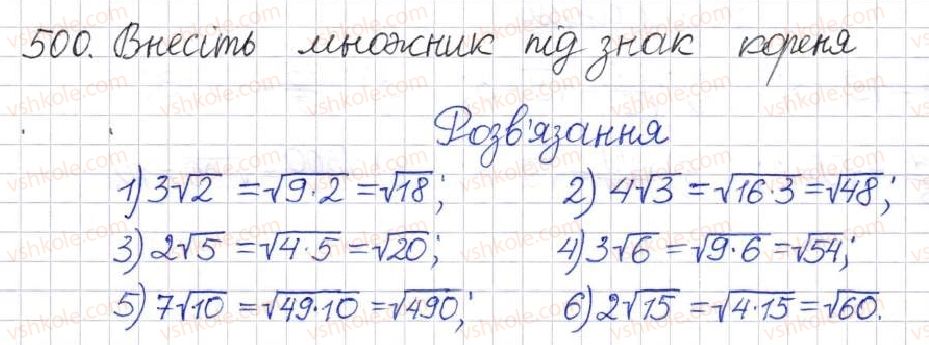 500. Внесіть множник під знак кореня
Розв'язання
1) 3√2 = √9·2 = √18; 2) 4√3 = √16·3 = √48;
3) 2√5 = √4·5 = √20; 4) 3√6 = √9·6 = √54;
5) 7√10 = √49·10 = √490; 6) 2√15 = √4·15 = √60.
vshkole.com